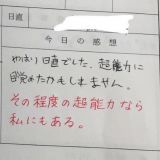 日直
今日の感想
やはり日直でした。超能力に
目覚めたかもしれません。
その程度の超能力なら
私にもある。